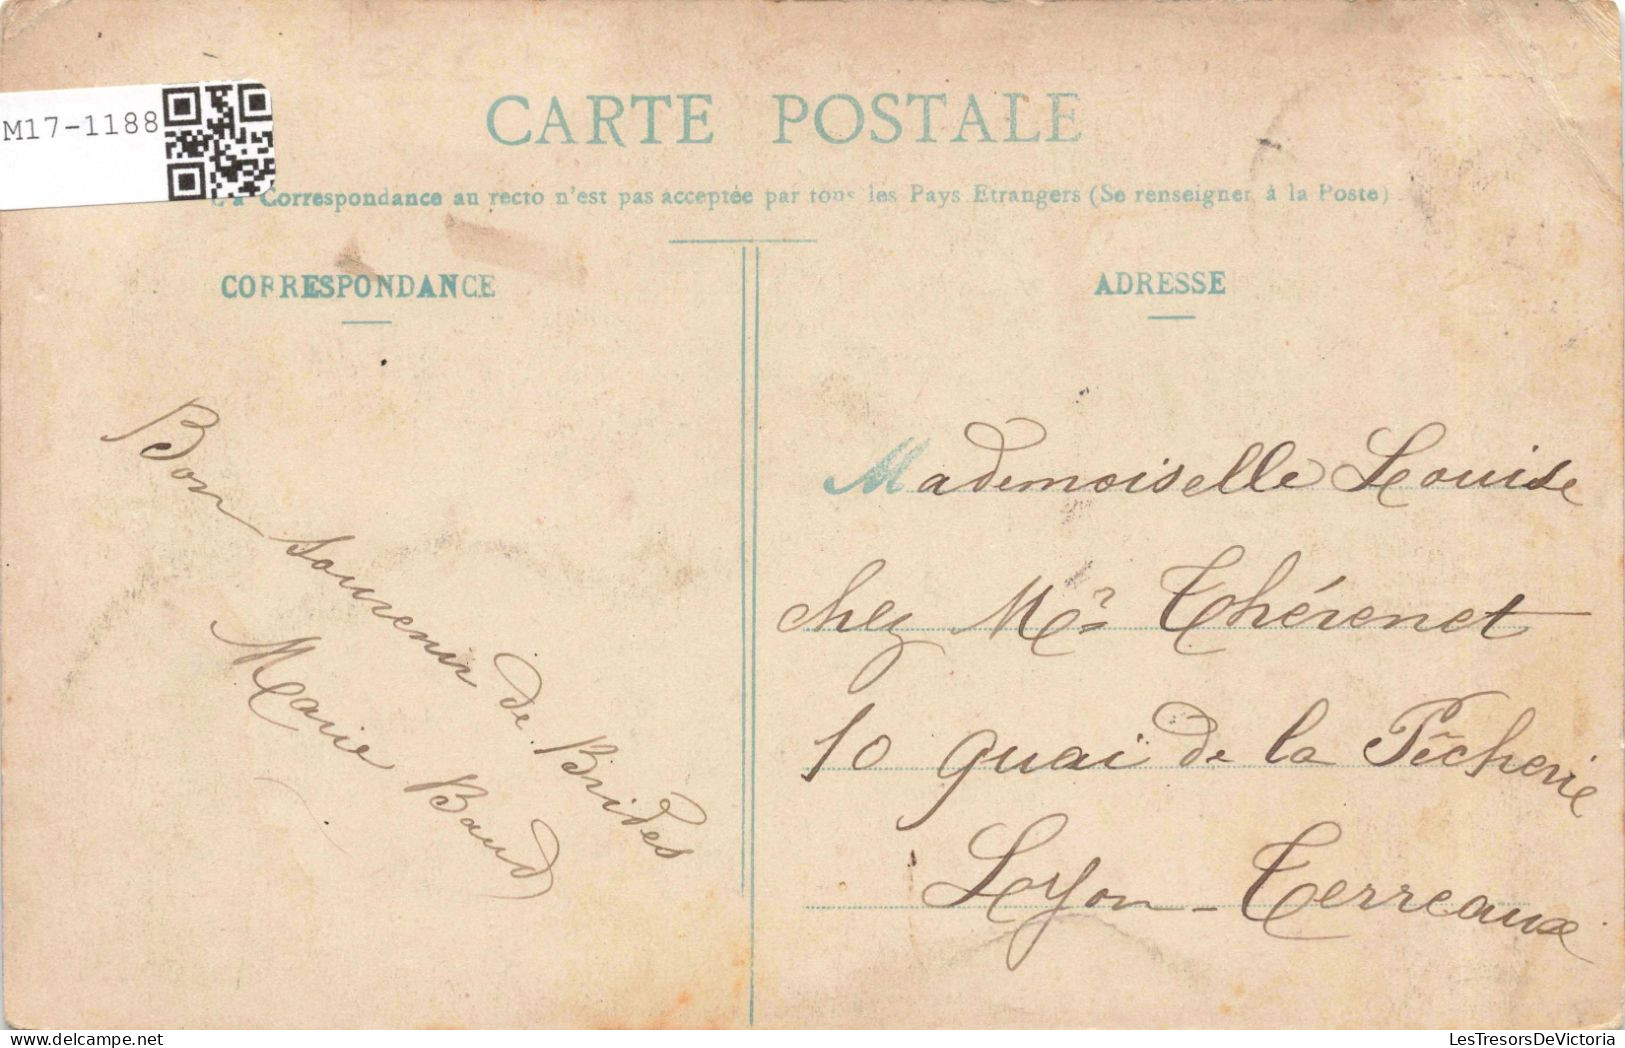 M17-1188
CARTE POSTALE
La Correspondance au recto n'est pas acceptée par tous les Pays Etrangers (Se renseigner à la Poste)
CORRESPONDANCE
Bon souvenir de Brides
Marie Baud
ADRESSE
Mademoiselle Louise
chez Mr Thévenet
10 quai de la Pêcherie
Lyon-Terreaux
LesTresorsDeVictoria